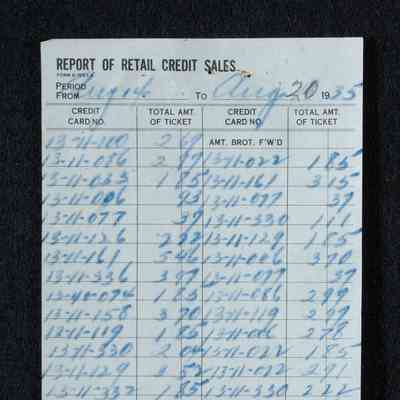 REPORT OF RETAIL CREDIT SALES
PERIOD
FROM Aug 16 TO Aug 20 1935
CREDIT CARD NO. TOTAL AMT. OF TICKET CREDIT CARD NO. TOTAL AMT. OF TICKET
13-11-100 2 69 AMT. BROT. F'W'D
13-11-086 2 97 13-11-022 1 85
13-11-033 1 85 13-11-161 3 15
13-11-006 93 13-11-077 37
13-11-077 37 13-11-330 1 11
13-11-126 2 22 13-11-129 1 85
13-11-161 5 46 13-11-006 3 70
13-11-336 3 97 13-11-077 37
13-40-074 1 85 13-11-086 2 99
13-11-158 3 70 13-11-119 2 97
13-11-119 1 85 13-11-006 2 78
13-11-330 2 04 13-11-022 1 85
13-11-129 3 52 13-11-022 2 91
13-11-332 1 85 13-11-330 2 22